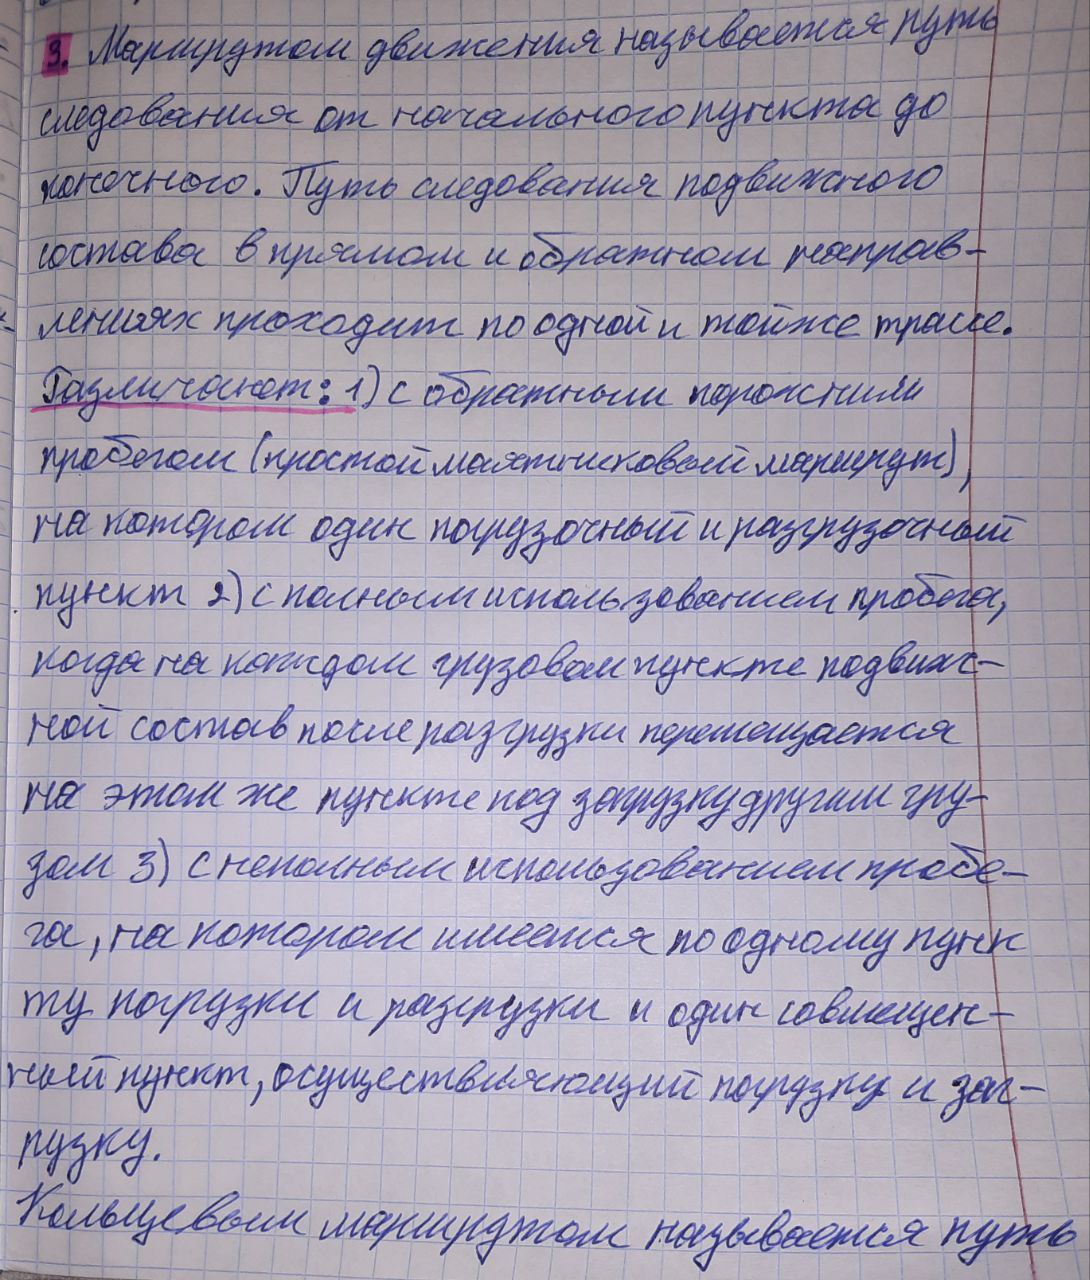 3. Маршрутом движения называется путь
следования от начального пункта до
конечного. Путь следования подвижного
состава в прямом и обратном направ-
лениях проходит по одной и той же трассе.
Различают: 1) с обратным порожним
пробегом (простой маятниковый маршрут),
на котором один погрузочный и разгрузочный
пункт 2) с полным использованием пробега,
когда на каждом грузовом пункте подвиж-
ной состав после разгрузки перемещается
на этом же пункте под загрузку другим гру-
зом 3) с неполным использованием пробе-
га, на котором имеется по одному пунк
ту погрузки и разгрузки и один совмещен-
ный пункт, осуществляющий погрузку и заг-
рузку.
Кольцевым маршрутом называется путь